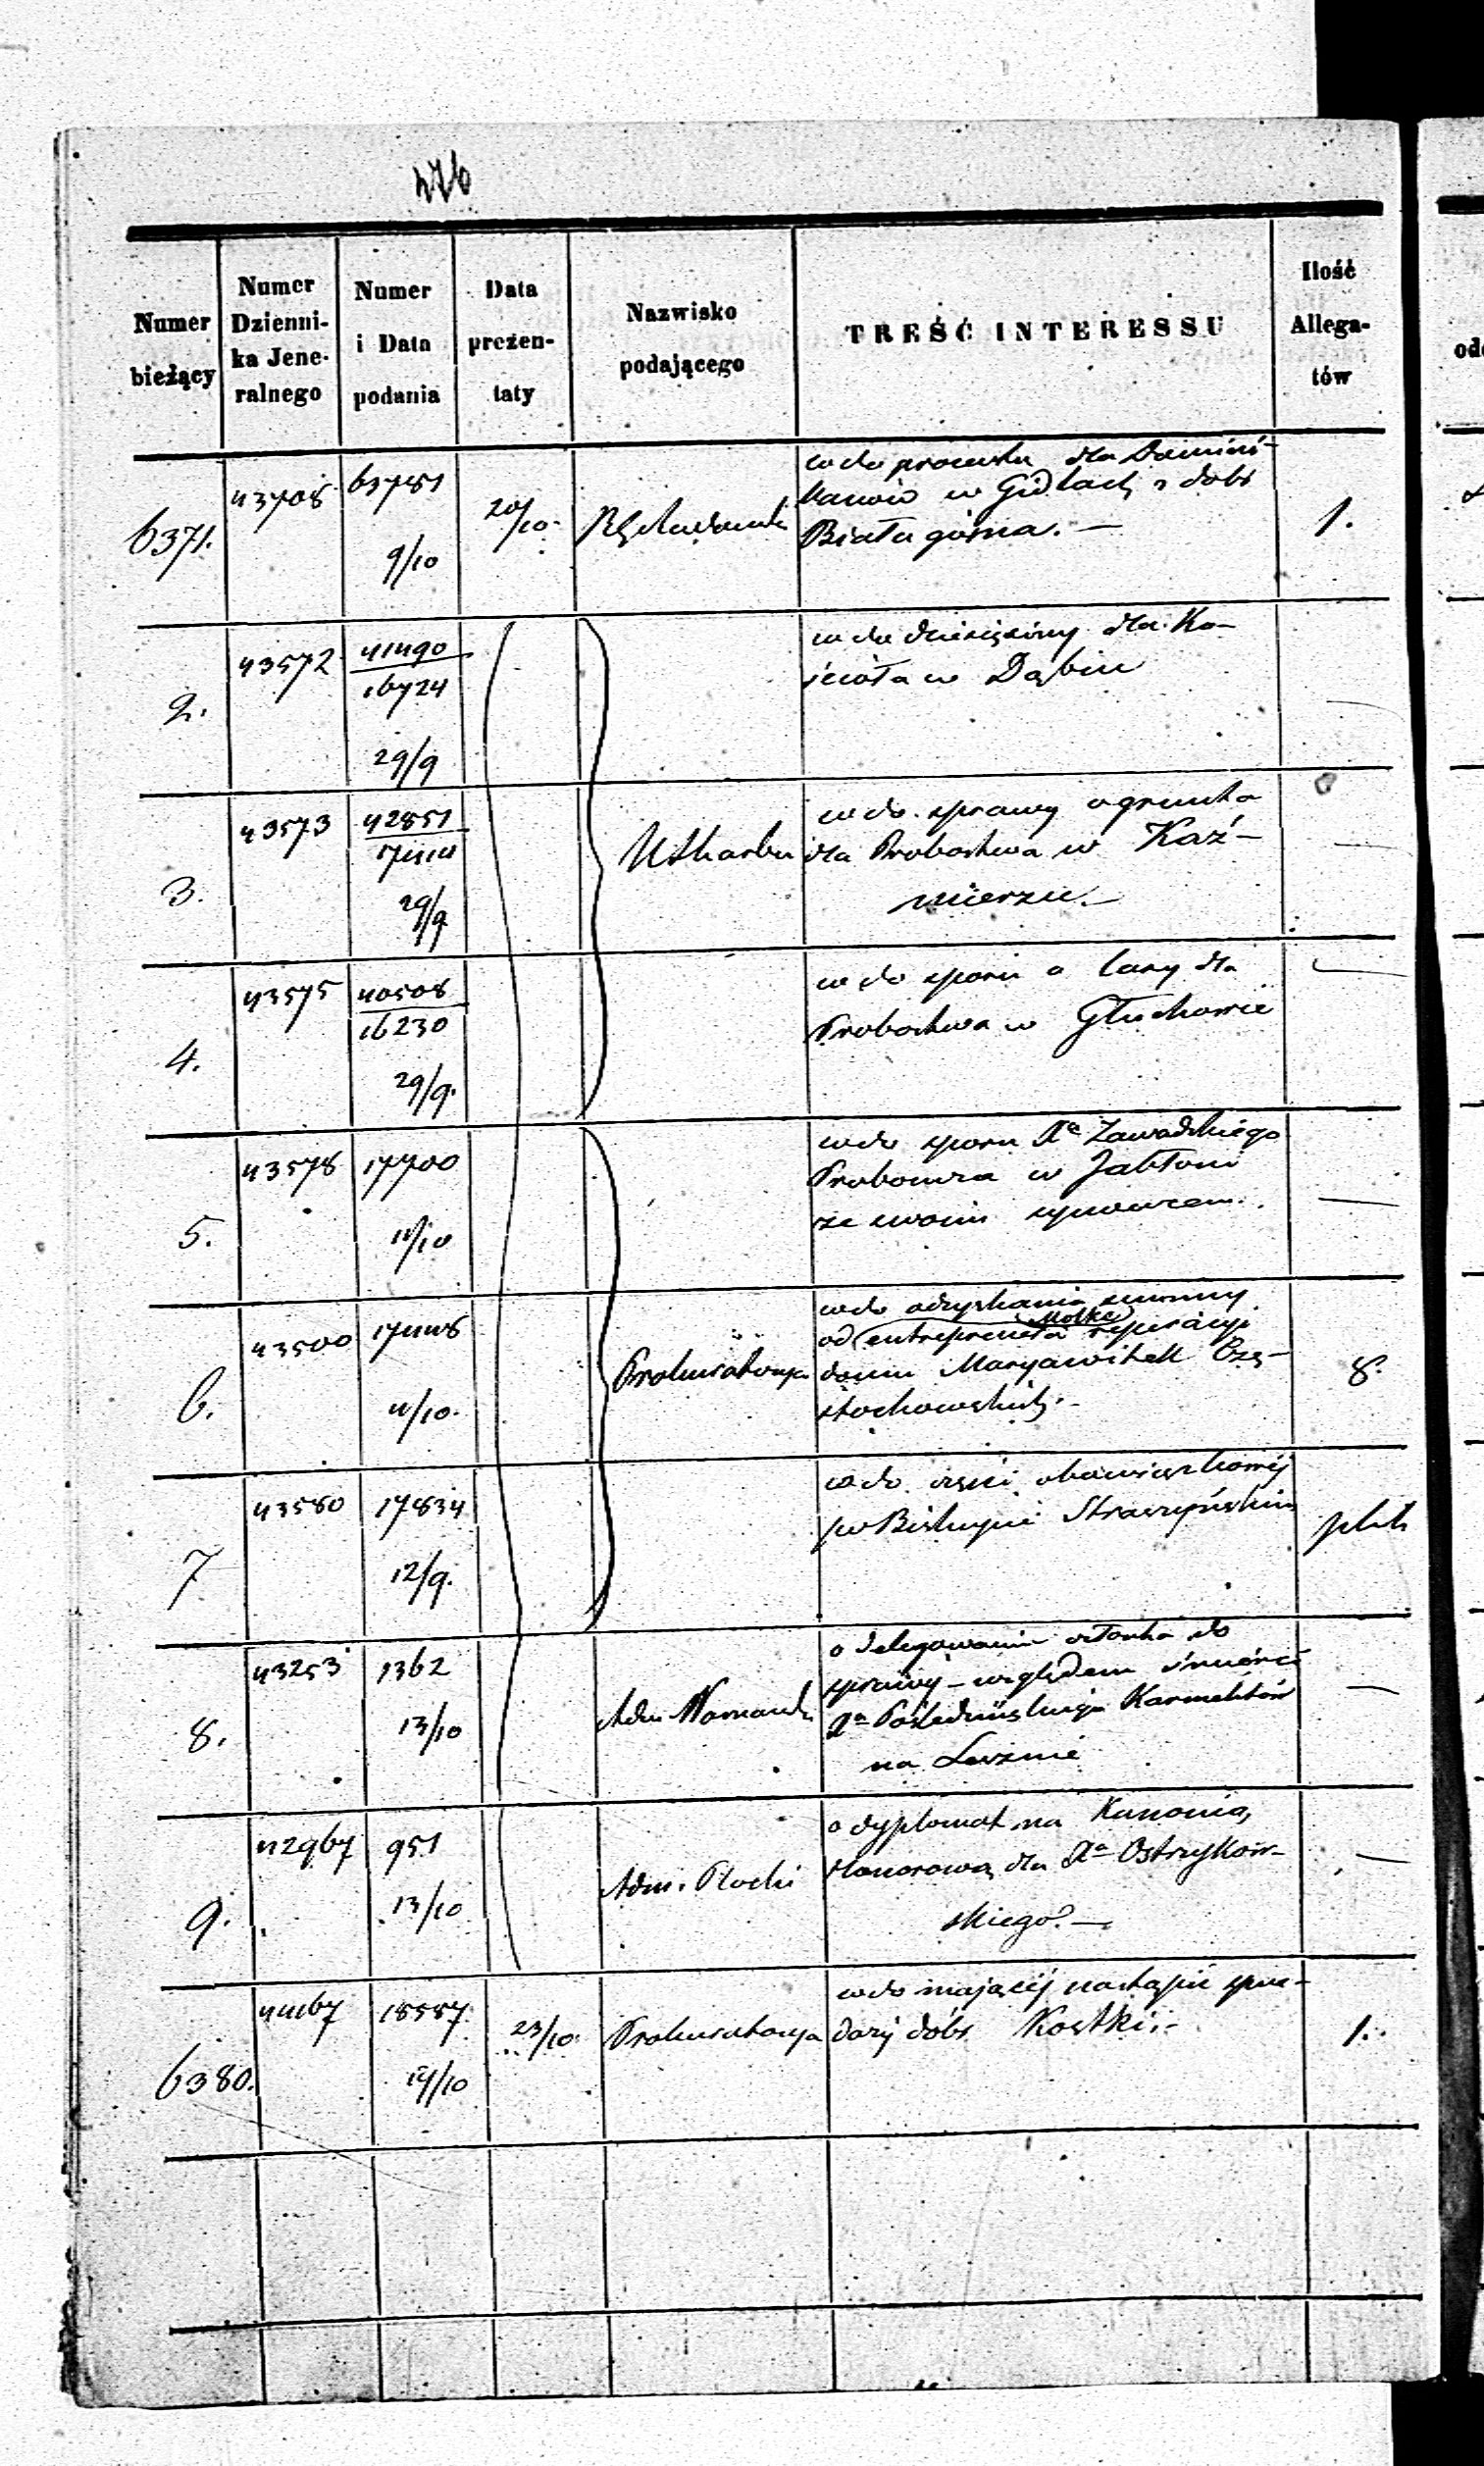 476
Numer bieżący
Numer Dzienni-
ka Jene-
ralnego
Numer
i Data
podania
Data
prezen-
taty
Nazwisko
podającego
TREŚĆ INTERESSU
Ilość
Allega-
tów
6371. 43708 63781 9/10 20/10 1.
wdo procentu dla Domini-
kanów w Gidlach z dóbr
Biała górna. —
2. 43572 41490 16724 29/9
wdo dziesięciny dla Ko-
ścioła w Dąbiu
3. 43573 42851 17414 29/9 —
wdo sprawy o grunta
dla Probostwa w Kaź-
mierzu. —
4. 43575 40508 16230 29/9. —
wdo sporu o łany dla
Probostwa w Głuchowie
5. 43578 17700 11/10 —
wdo sporu Xa Zawadzkiego
Proboszcza w Jabłoni
ze swoim
6. 43500 17448 11/10. Prokuratorya 8.
wdo odzyskania summy
od entreprenera Molke reparacyi
domu Maryawitek Czę-
stochowskich. -
7 43580 17834 12/9.
wdo części obowiązkowej
po Biskupie Straszyńskim
8. 43253 1362 13/10 Adm —
o delegowanie członka do
sprawy - względem śmierci
Xa Karmelitów
na Lesznie
9. 42967 951 13/10 Adm. Płocki —
o dyplomat na Kanonią
Honorową dla Xa Ostrzykow-
skiego. —
6380. 44167 18587 14/10 23/10 Prokuratorya 1.
wdo mającej nastąpić sprze-
daży dóbr Kostki. -